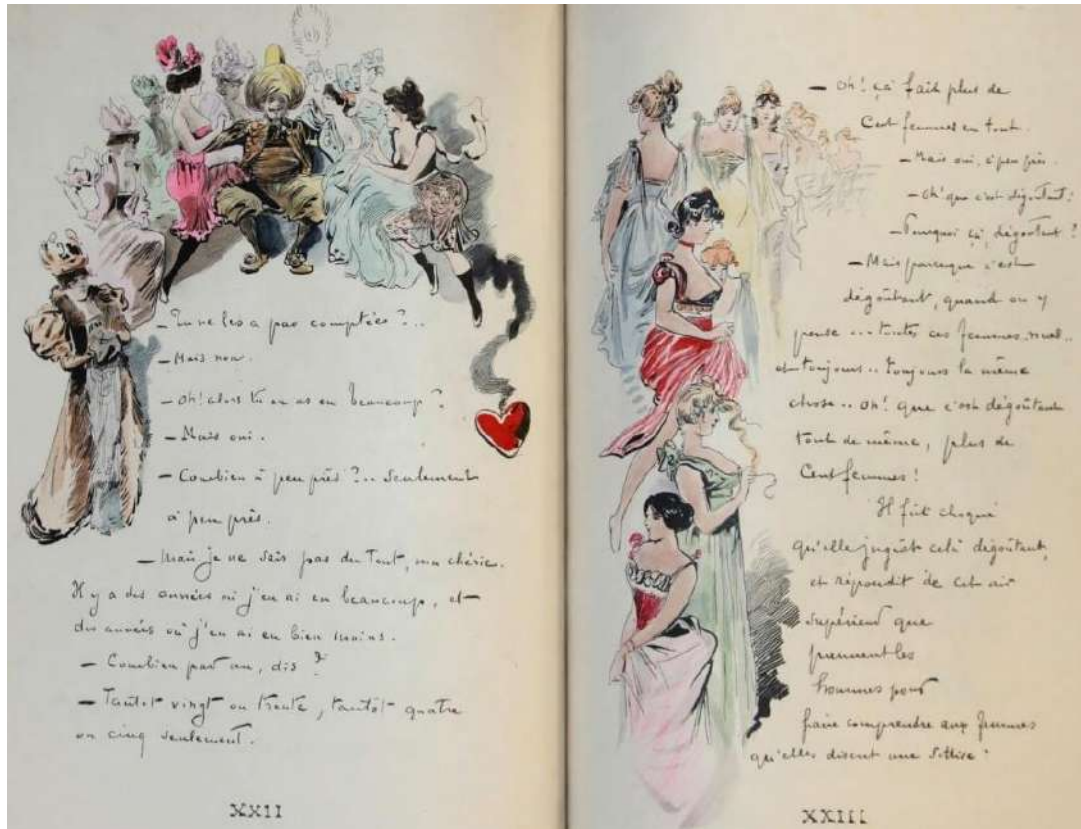 — Tu ne les a pas comptées ?..
— Mais non.
— Oh! alors tu en as eu beaucoup ?
— Mais oui.
— Combien à peu près ?.. Seulement
à peu près.
— Mais je ne sais pas du tout, ma chérie.
Il y a des années où j'en ai eu beaucoup, et
des années où j'en ai eu bien moins.
— Combien par an, dis ?
— Tantôt vingt ou trente, tantôt quatre
ou cinq seulement.
XXII
— Oh! çà fait plus de
Cent femmes en tout.
— Mais oui, à peu près.
— Oh! que c'est dégoutant!
— Pourquoi çà, dégoûtant ?
— Mais parceque c'est
dégoûtant, quand on y
pense ... toutes ces femmes.. nues..
et toujours.. toujours la même
chose.. Oh! que c'est dégoûtant
tout de même, plus de
Cent femmes !
Il fut choqué
qu'elle jugeât celà dégoûtant,
et répondit de cet air
supérieur que
prennent les
hommes pour
faire comprendre aux femmes
qu'elles disent une Sottise :
XXIII